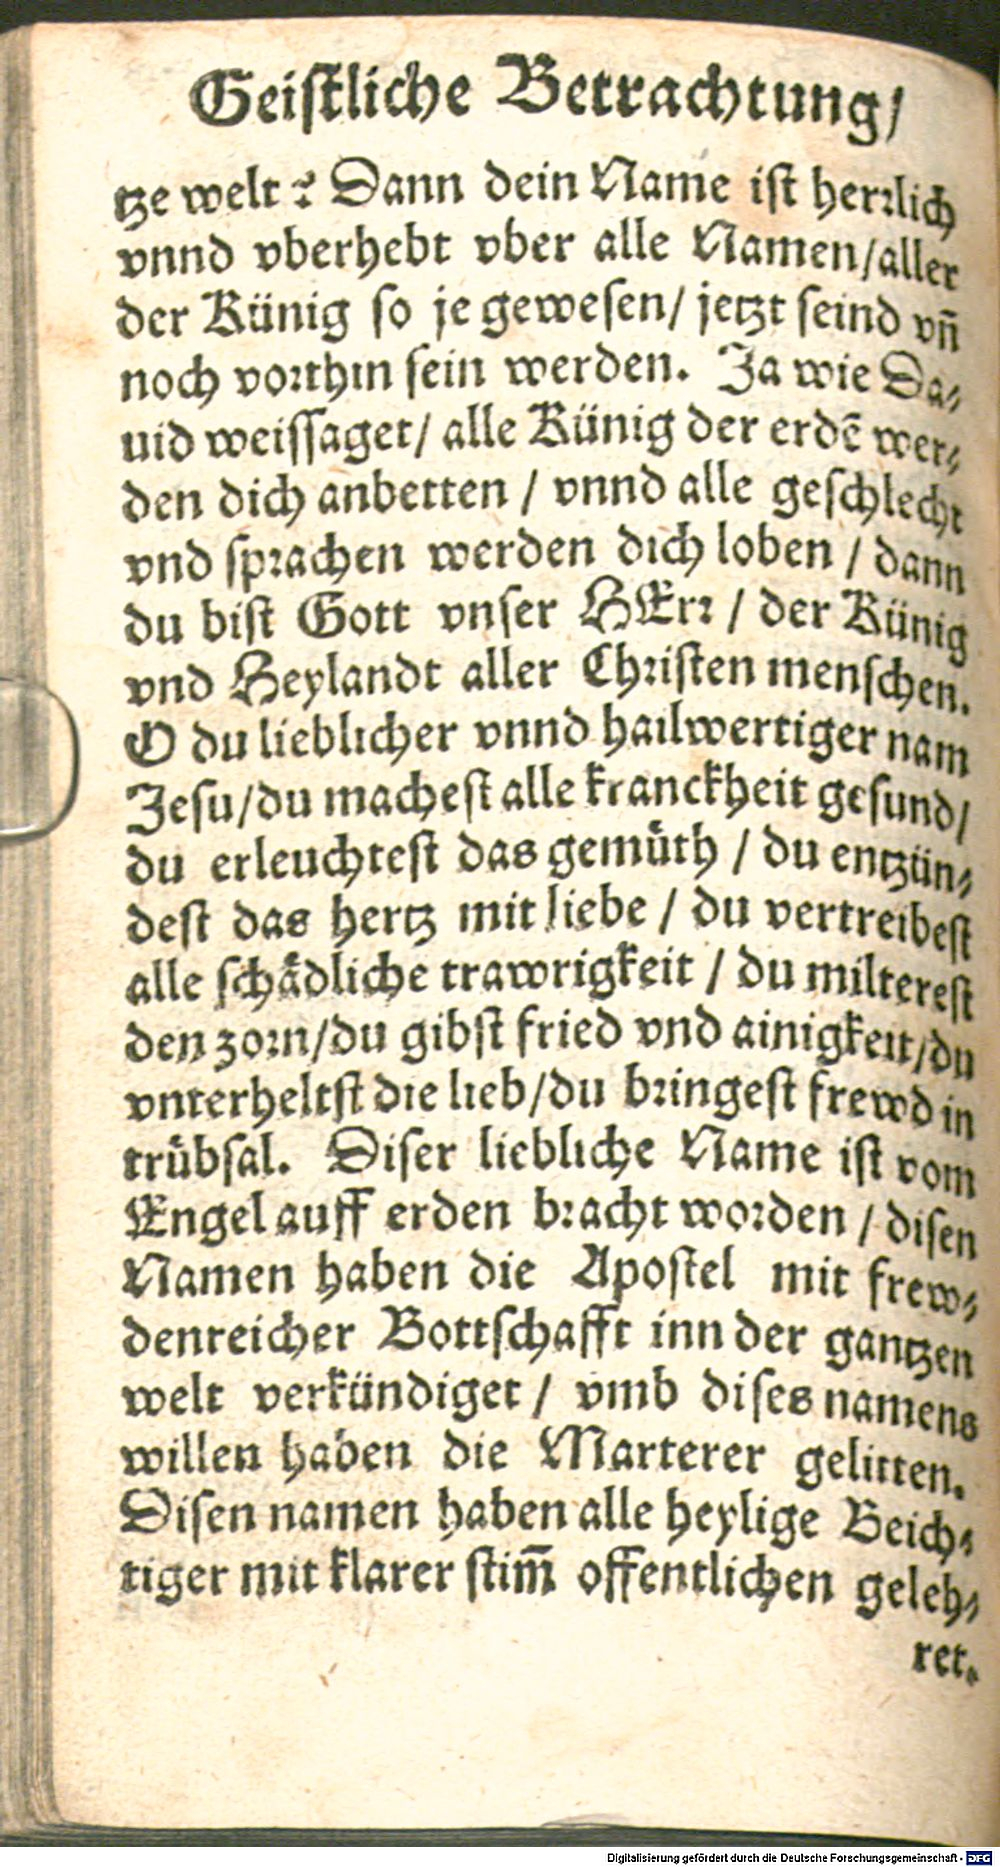 Geistliche Betrachtung/
tze welt? Dann dein Name ist herꝛlich
vnnd vberhebt vber alle Namen/aller
der Künig so je gewesen/ jetzt seind vñ
noch voꝛthin sein werden. Ja wie Da⸗
uid weissaget/ alle Künig der erdẽ wer⸗
den dich anbetten / vnnd alle geschlecht
vnd spꝛachen werden dich loben / dann
du bist Gott vnser HErꝛ / der Künig
vnd Heylandt aller Chꝛisten menschen.
O du lieblicher vnnd hailwertiger nam
Jesu/du machest alle kranckheit gesund/
du erleuchtest das gemuͤth / du entzün⸗
dest das hertz mit liebe / du vertreibest
alle schaͤdliche trawrigkeit / du milterest
den zoꝛn/du gibst fried vnd ainigkeit/du
vnterheltst die lieb/du bꝛingest frewd in
truͤbsal. Diser liebliche Name ist vom
Engel auff erden bꝛacht woꝛden / disen
Namen haben die Apostel mit frew⸗
denreicher Bottschafft inn der gantzen
welt verkündiget / vmb dises namens
willen haben die Marterer gelitten.
Disen namen haben alle heylige Beich⸗
tiger mit klarer stim̃ offentlichen geleh⸗
ret.
Digitalisierung gefördert durch die Deutsche Forschungsgemeinschaft - DFG